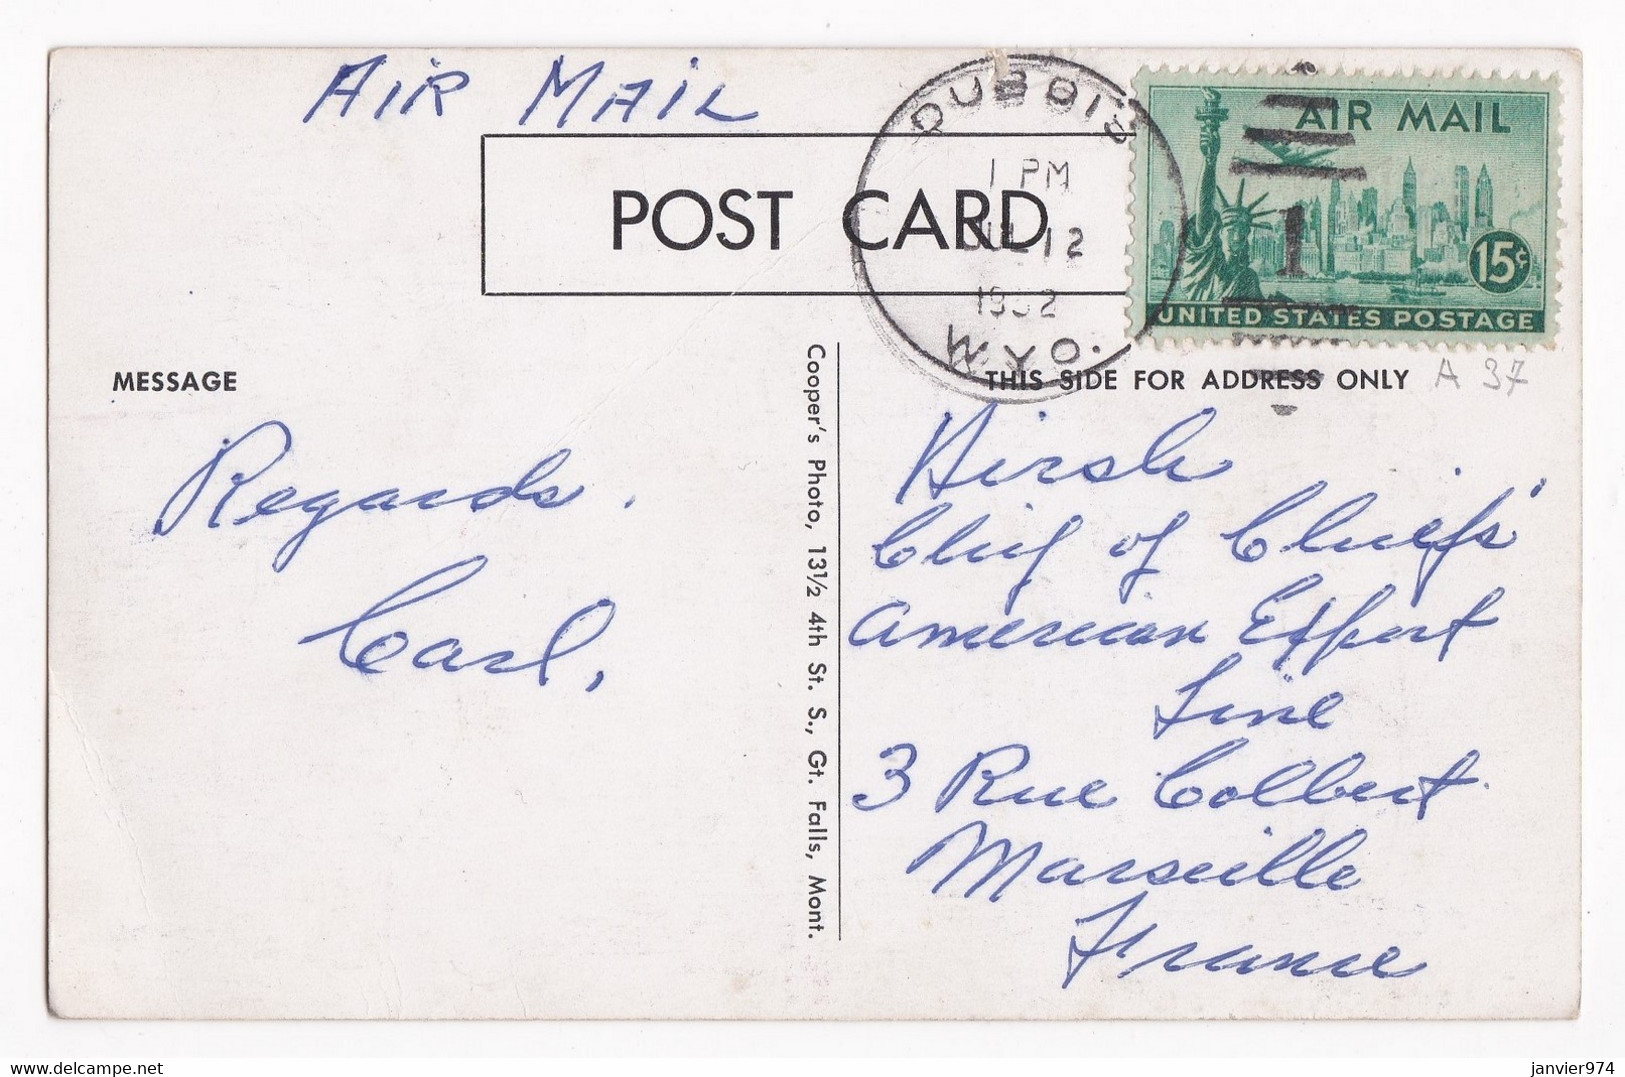 AIR MAIL
DUBOIS
1 PM
JUL 12
1952
WYO.
AIR MAIL
1
15¢
UNITED STATES POSTAGE
POST CARD
MESSAGE
THIS SIDE FOR ADDRESS ONLY
A 37
Regards.
Carl,
Cooper's Photo, 13½ 4th St. S., Gt. Falls, Mont.
Hirsh
Chief of Chiefs'
American Export
Line
3 Rue Colbert
Marseille
France
delcampe.net
janvier974